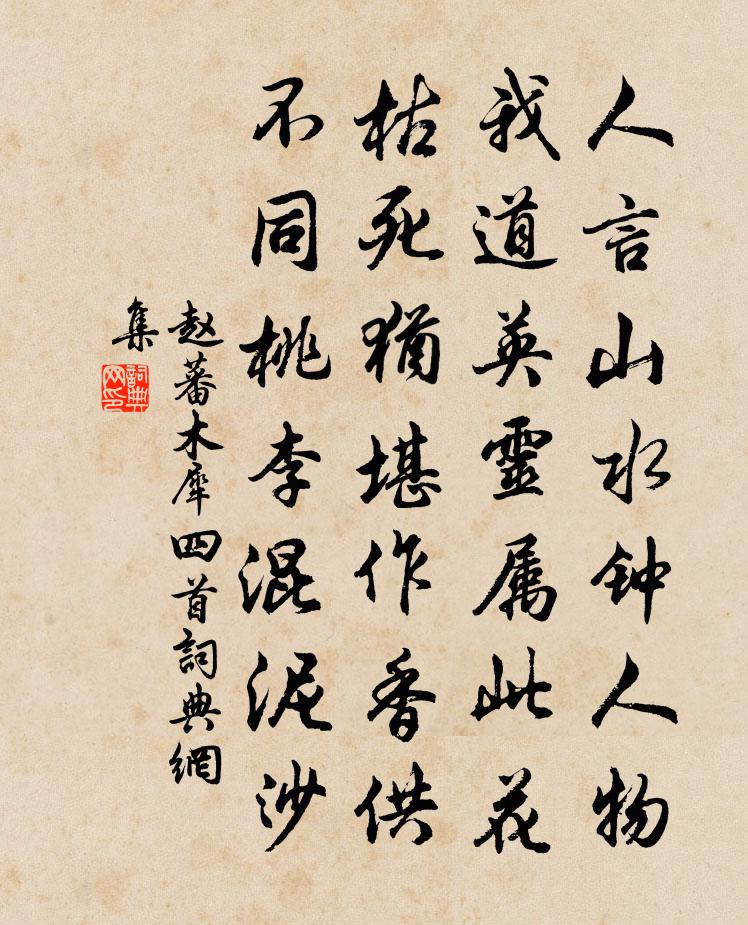 人言山水钟人物
我道英靈属此花
枯死猶堪作香供
不同桃李混泥沙
赵蕃木犀四首詞典網
集
詞典
网印